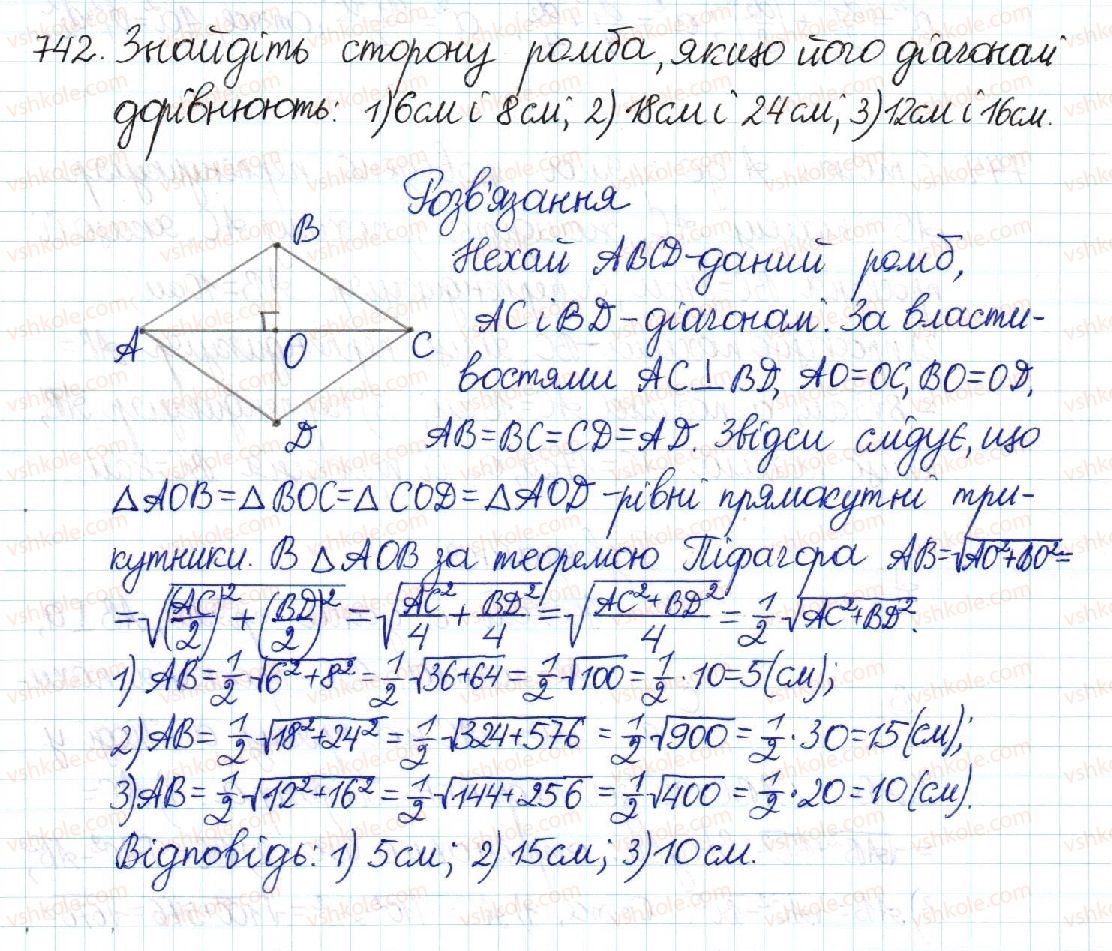 742. Знайдіть сторону ромба, якщо його діагоналі
дорівнюють: 1) 6см і 8см; 2) 18см і 24см; 3) 12см і 16см.
Розв'язання
Нехай ABCD-даний ромб,
AC і BD-діагоналі. За власти-
востями AC⊥BD, AO=OC, BO=OD,
AB=BC=CD=AD. Звідси слідує, що
△AOB=△BOC=△COD=△AOD-рівні прямокутні три-
кутники. В △AOB за теоремою Піфагора AB=√(AO²+BO²)=
=√((AC/2)²+(BD/2)²)=√(AC²/4+BD²/4)=√((AC²+BD²)/4)=1/2√(AC²+BD²).
1) AB=1/2√(6²+8²)=1/2√(36+64)=1/2√100=1/2·10=5(см);
2) AB=1/2√(18²+24²)=1/2√(324+576)=1/2√900=1/2·30=15(см);
3) AB=1/2√(12²+16²)=1/2√(144+256)=1/2√400=1/2·20=10(см).
Відповідь: 1) 5см; 2) 15см; 3) 10см.
B
A
O
C
D
vshkole.com